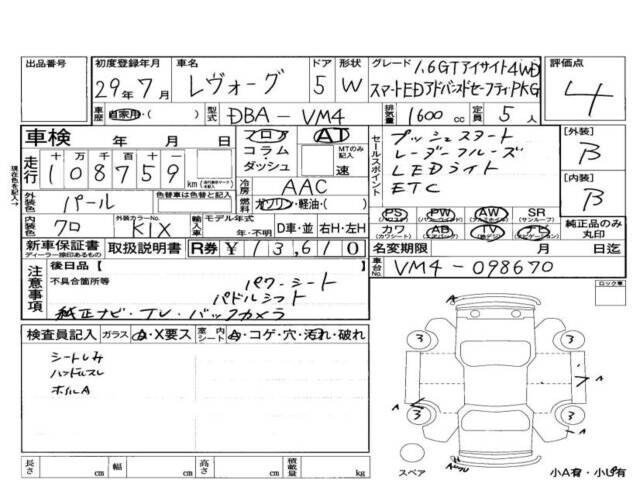 出品番号
初度登録年月 29年7月
車名 レヴォーグ
ドア 5
形状 W
グレード 1.6GTアイサイト4WD
スマートEDアドバンスドセーフティPKG
評価点 4
車歴 自家用・( )
型式 DBA-VM4
排気量 1600 cc
定員 5人
車検 年 月 日
フロア AT
コラム
ダッシュ
MTのみ記入
速
走行 十万千百十一
108759 km
冷房 AAC
燃料 ガソリン・軽油・( )
外装色 パール
色替車は色替と記入
内装色 クロ
外装カラーNo. K1X
輸入車 モデル年式
年・不明
D車・並
右H・左H
セールスポイント
プッシュスタート
レーダークルーズ
LEDライト
ETC
[外装] B
[内装] B
PS PW AW SR
(サンルーフ)
カワ AB TV
(カワシート)
純正品のみ丸印
新車保証書
ディーラー捺印あるもの
取扱説明書
R券 ¥13,610
名変期限 月 日迄
車台No. VM4-098670
現在色を記入→
注意事項
後日品【
不具合箇所等
パワーシート
パドルシフト
純正ナビ・TV・バックカメラ
ロック車
検査員記入
ガラス A・X要ス
室内シート 
コゲ・穴・汚れ・破れ
シートしみ
ハンドルスレ
ホイルA
3 3
3 3
スペア
小A有・小U有
長さ cm
幅 cm
高さ cm
積載量 kg